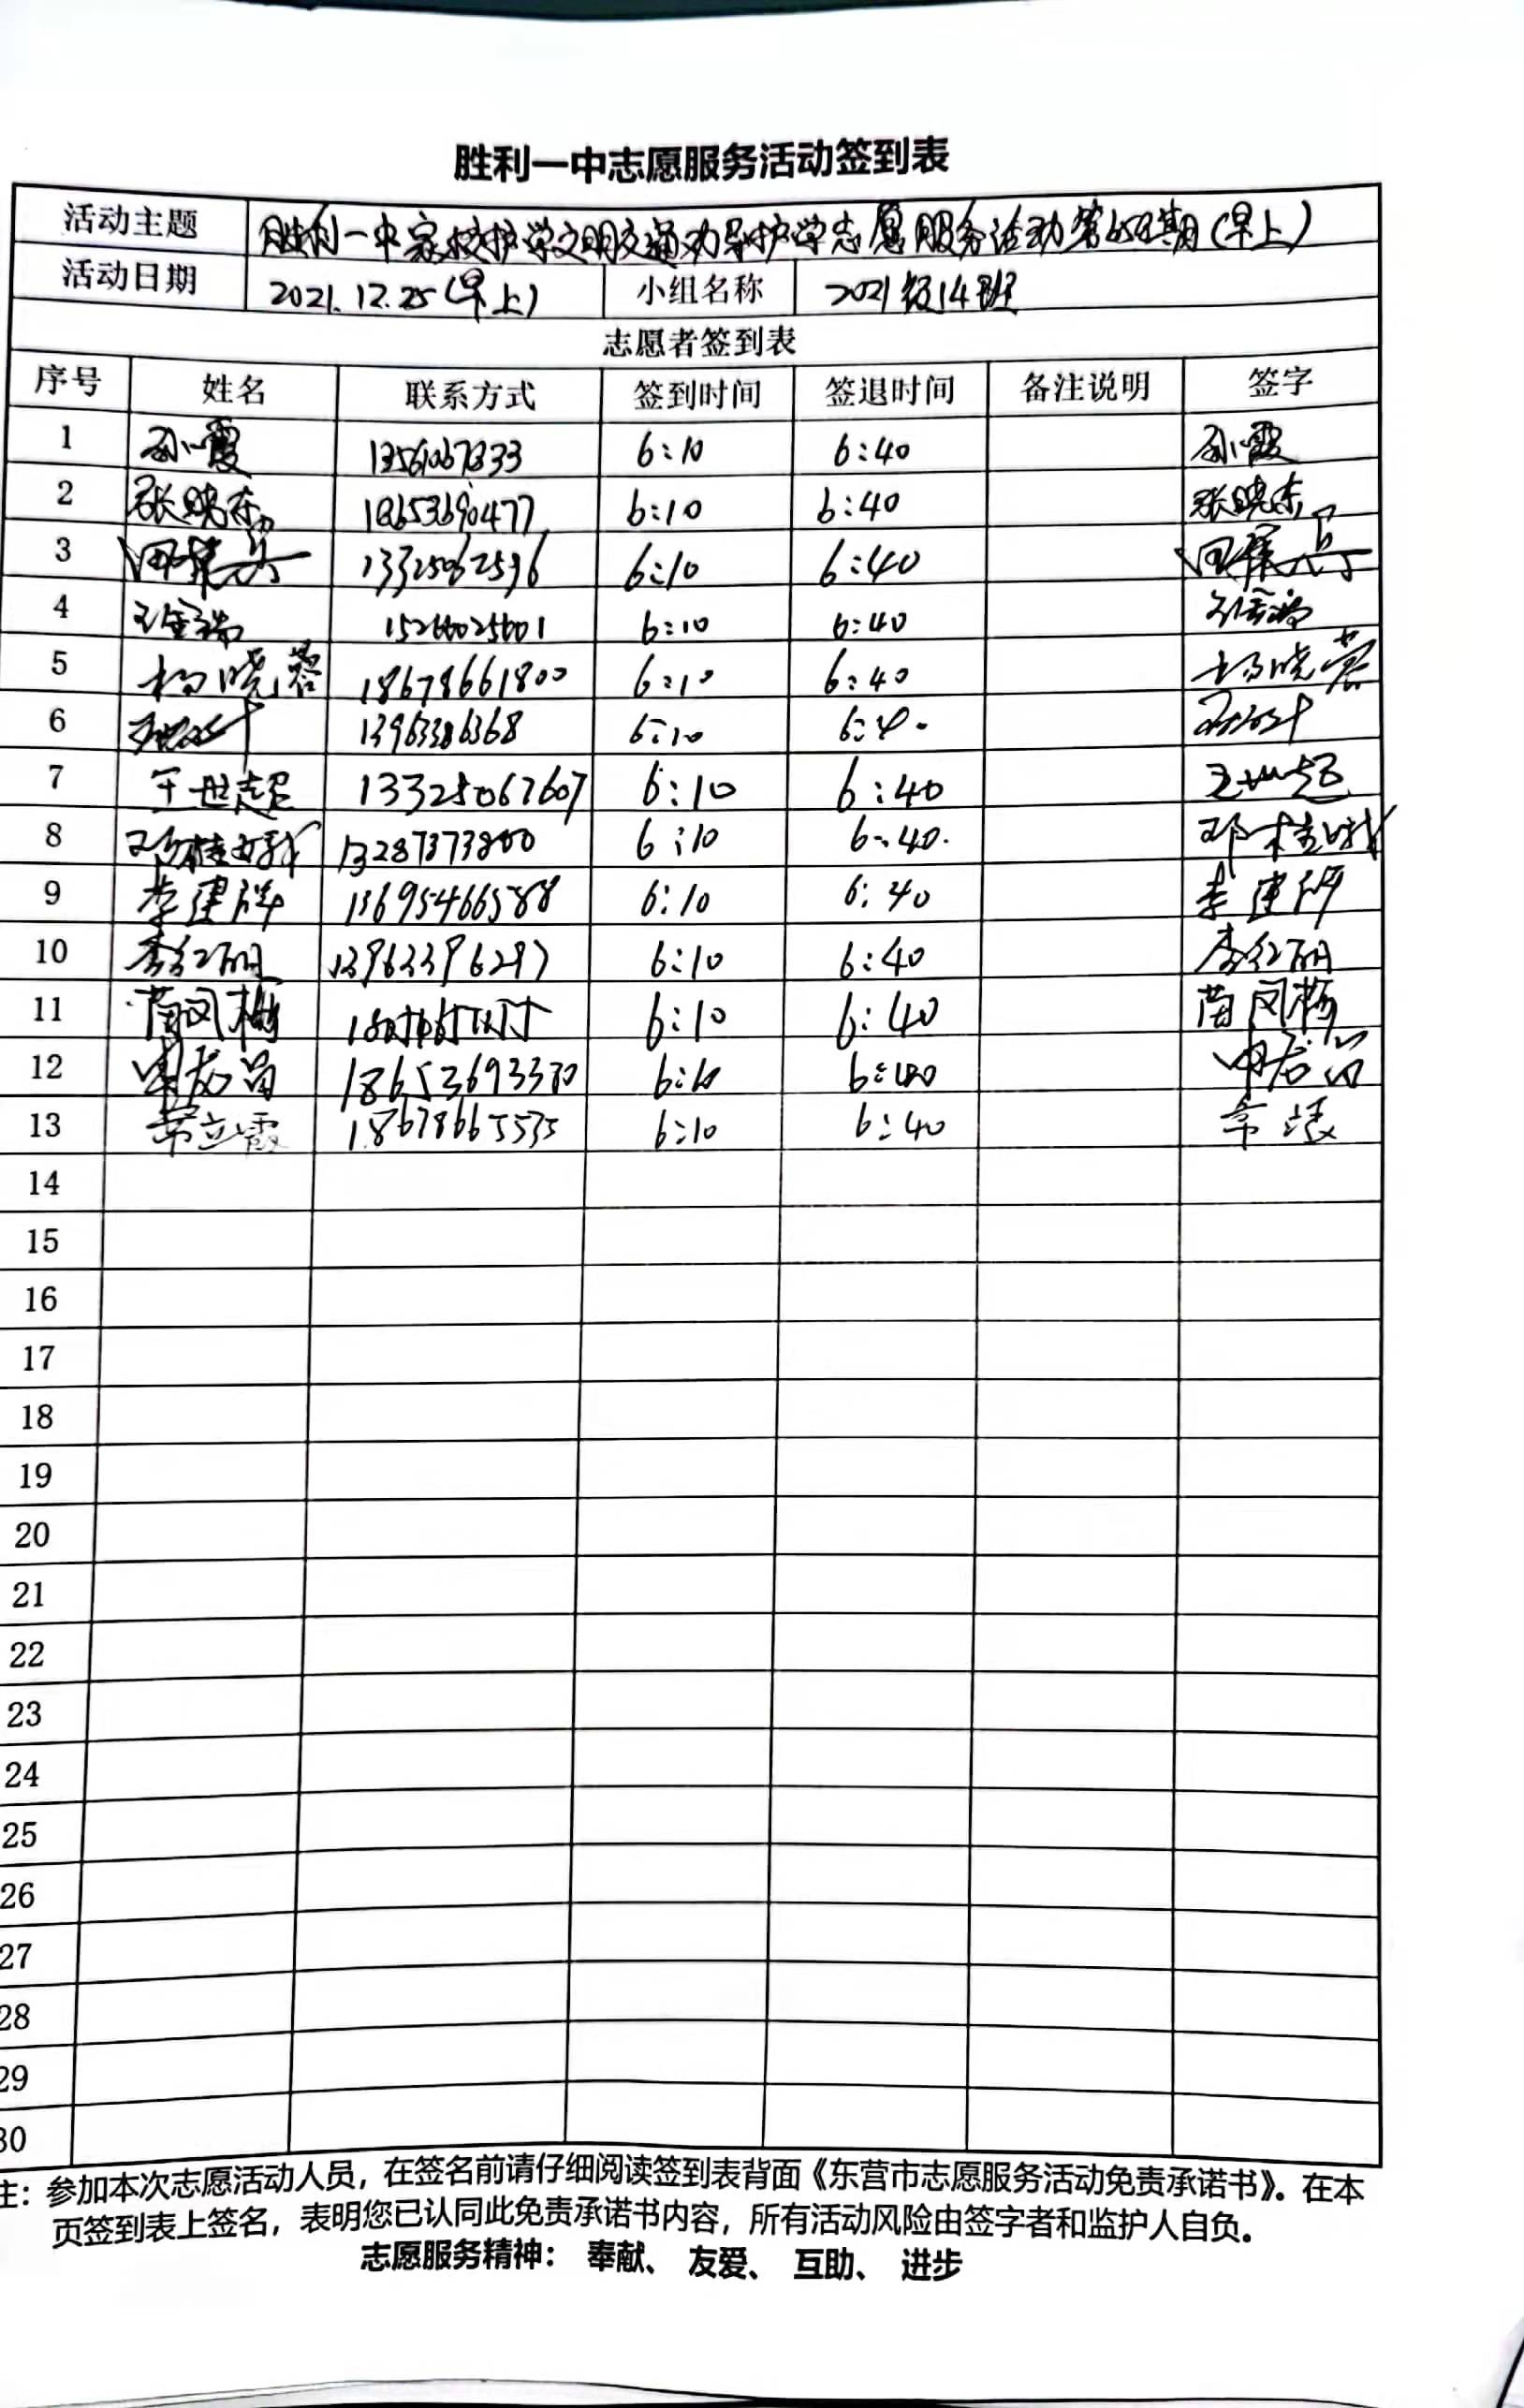 胜利一中志愿服务活动签到表
活动主题 胜利一中家校护学文明交通劝导护学志愿服务活动第 期(早上)
活动日期 2021.12.25(早上) 小组名称 2021级14班
志愿者签到表
序号 姓名 联系方式 签到时间 签退时间 备注说明 签字
1 孙霞 6:10 6:40 孙霞
2 张晓东 18653690477 6:10 6:40 张晓东
3 13325062596 6:10 6:40
4 6:10 6:40
5 杨晓蓉 18678661800 6:10 6:40 杨晓蓉
6 13963386368 6:10 6:40
7 王世超 13325067607 6:10 6:40 王世超
8 邓桂娥 13287373800 6:10 6:40 邓桂娥
9 李建 13695466588 6:10 6:40 李建
10 李红丽 13963396297 6:10 6:40 李红丽
11 苗凤梅 6:10 6:40 苗凤梅
12 18653693370 6:10 6:40
13 常立霞 18678665535 6:10 6:40 常立霞
14
15
16
17
18
19
20
21
22
23
24
25
26
27
28
29
30
注：参加本次志愿活动人员，在签名前请仔细阅读签到表背面《东营市志愿服务活动免责承诺书》。在本
页签到表上签名，表明您已认同此免责承诺书内容，所有活动风险由签字者和监护人自负。
志愿服务精神： 奉献、 友爱、 互助、 进步